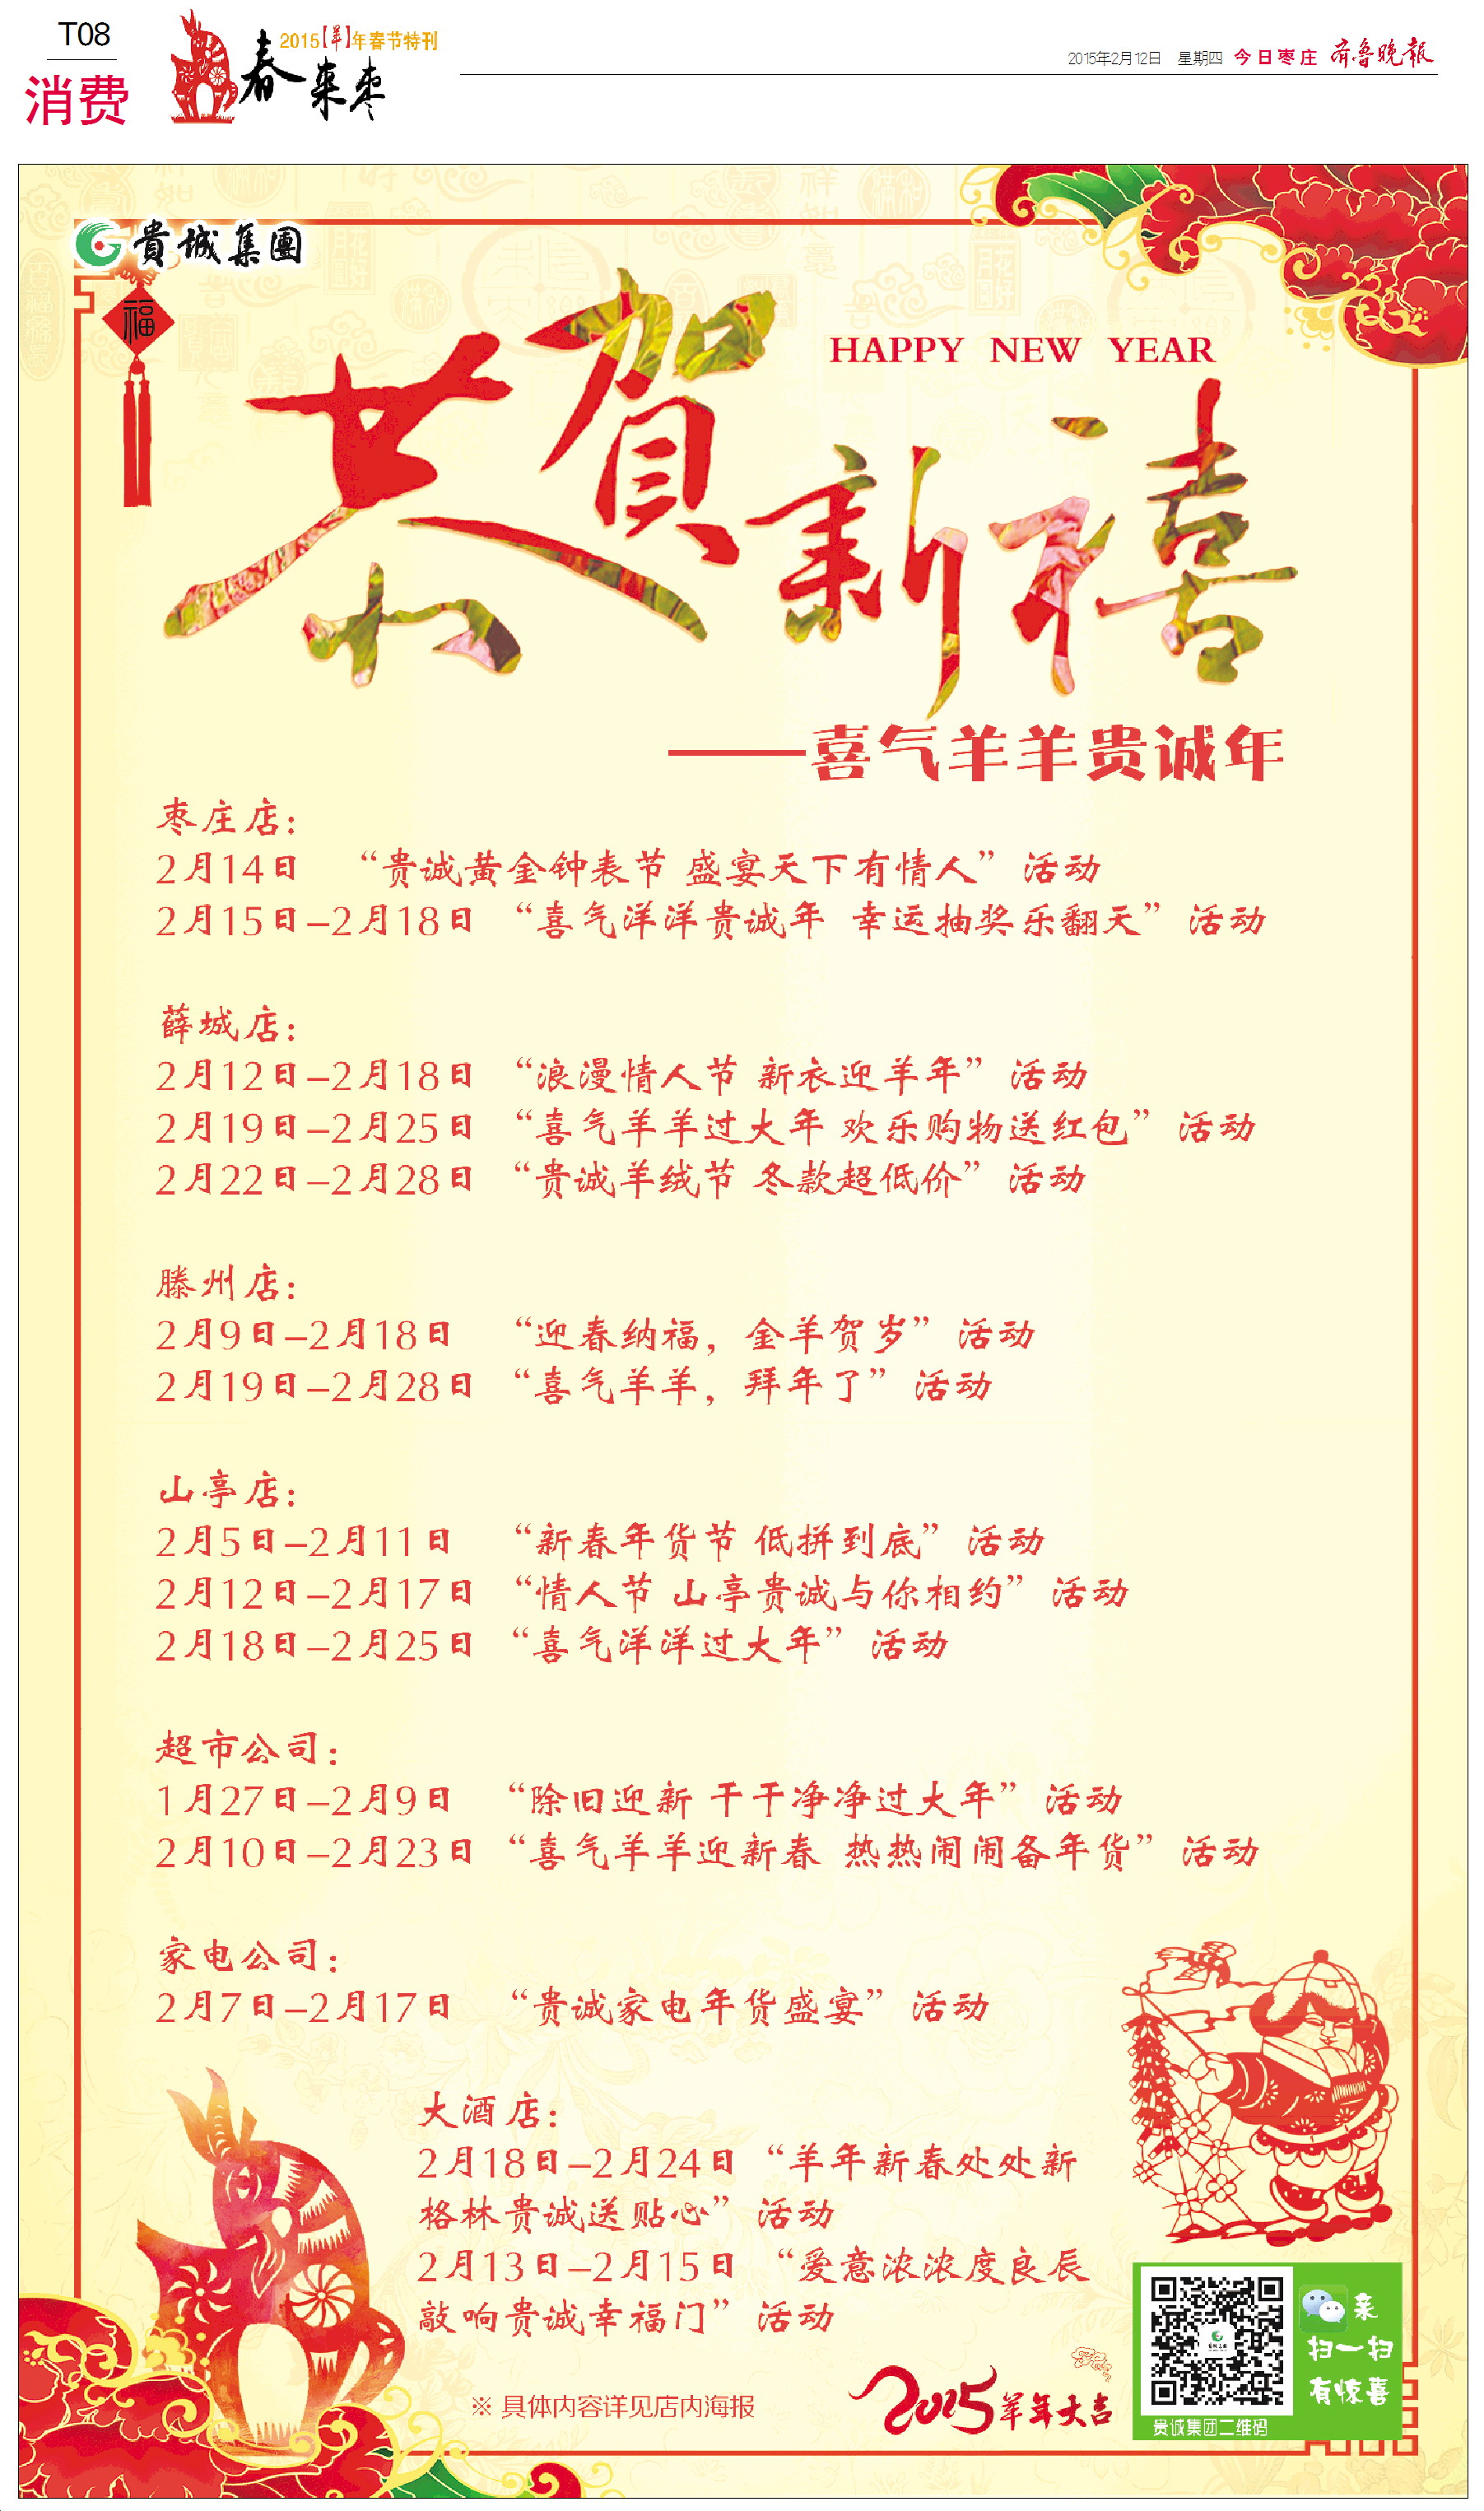 T08
消费
2015【羊】年春节特刊
春来枣
2015年2月12日 星期四 今日枣庄 齐鲁晚报
贵诚集团
福
HAPPY NEW YEAR
恭贺新禧
——喜气羊羊贵诚年
枣庄店：
2月14日 “贵诚黄金钟表节 盛宴天下有情人” 活动
2月15日–2月18日 “喜气洋洋贵诚年 幸运抽奖乐翻天” 活动
薛城店：
2月12日–2月18日 “浪漫情人节 新衣迎羊年” 活动
2月19日–2月25日 “喜气羊羊过大年 欢乐购物送红包” 活动
2月22日–2月28日 “贵诚羊绒节 冬款超低价” 活动
滕州店：
2月9日–2月18日 “迎春纳福，金羊贺岁” 活动
2月19日–2月28日 “喜气羊羊，拜年了” 活动
山亭店：
2月5日–2月11日 “新春年货节 低拼到底” 活动
2月12日–2月17日 “情人节 山亭贵诚与你相约” 活动
2月18日–2月25日 “喜气洋洋过大年” 活动
超市公司：
1月27日–2月9日 “除旧迎新 干干净净过大年” 活动
2月10日–2月23日 “喜气羊羊迎新春 热热闹闹备年货” 活动
家电公司：
2月7日–2月17日 “贵诚家电年货盛宴” 活动
大酒店：
2月18日–2月24日 “羊年新春处处新
格林贵诚送贴心” 活动
2月13日–2月15日 “爱意浓浓度良辰
敲响贵诚幸福门” 活动
※ 具体内容详见店内海报
2015羊年大吉
亲
扫一扫
有惊喜
贵诚集团二维码